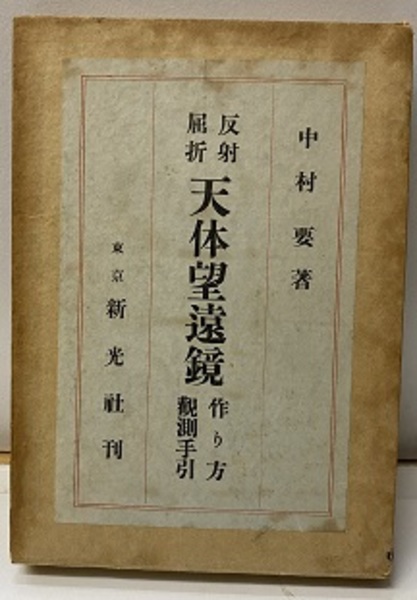 中村要著
反射
屈折
天体望遠鏡
作り方
觀測手引
東京 新光社刊